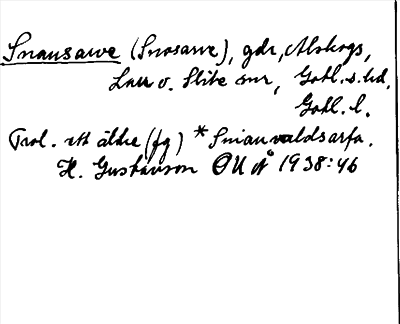 Snausarve (Snosarve), gdr, Alskogs,
Lau o. Slite snr, Gotl. s. hd,
Gotl. l.
Trol. ett äldre (fg) * Snianvaldsarfa.
H. Gustavson OUÅ 1938:46